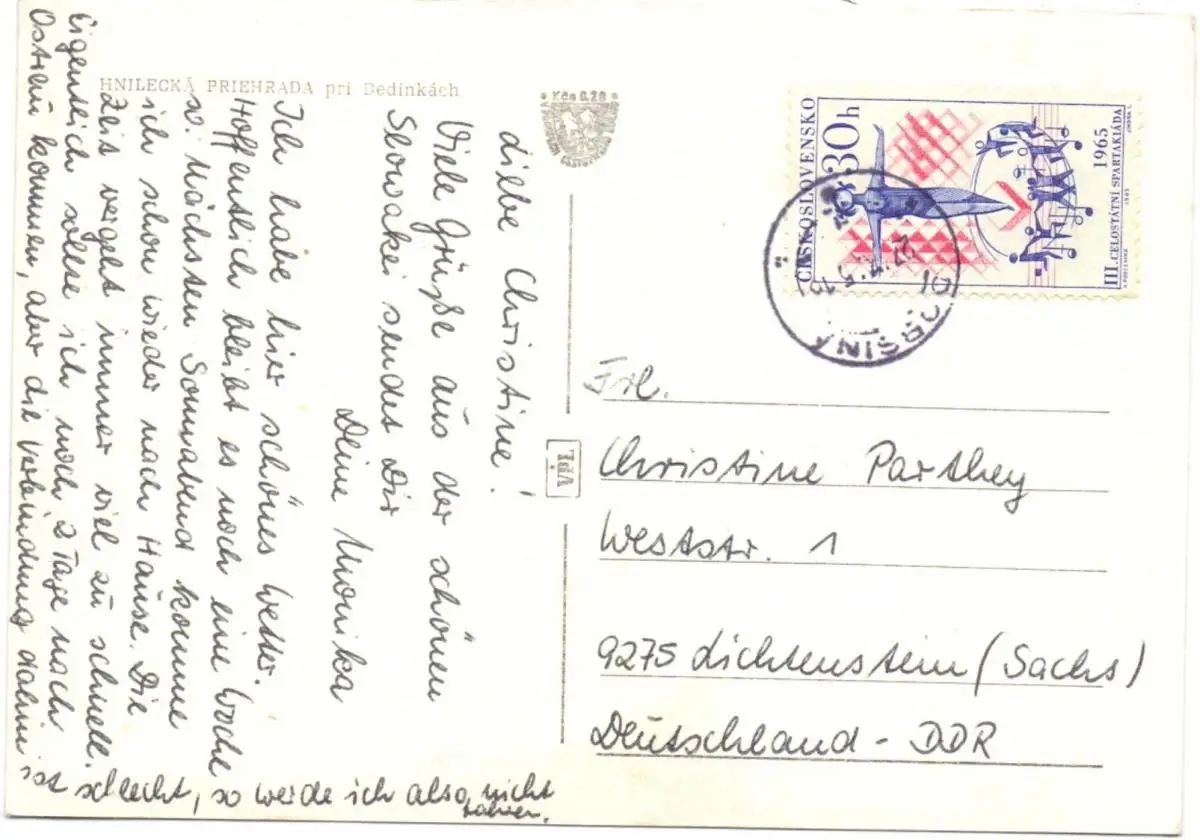 HNILECKÁ PRIEHRADA pri Dedinkách
Kčs 0.20
Liebe Christine!
Viele Grüße aus der schönen
Slowakei sendet Dir
Deine Monika
Ich habe hier schönes Wetter.
Hoffentlich bleibt es noch eine Woche
so. Nächsten Sonnabend komme
ich schon wieder nach Hause. Die
Zeit vergeht immer viel zu schnell.
Eigentlich sollte ich noch 2 Tage nach
kommen, aber die Verbindung dahin
ist schlecht, so werde ich also nicht
fahren.
VPL
ČESKOSLOVENSKO
30h
1965
III. CELOSTÁTNÍ SPARTAKIÁDA
DOBŠINÁ
Frl.
Christine Parthey
Weststr. 1
9275 Lichtenstein (Sachs)
Deutschland - DDR